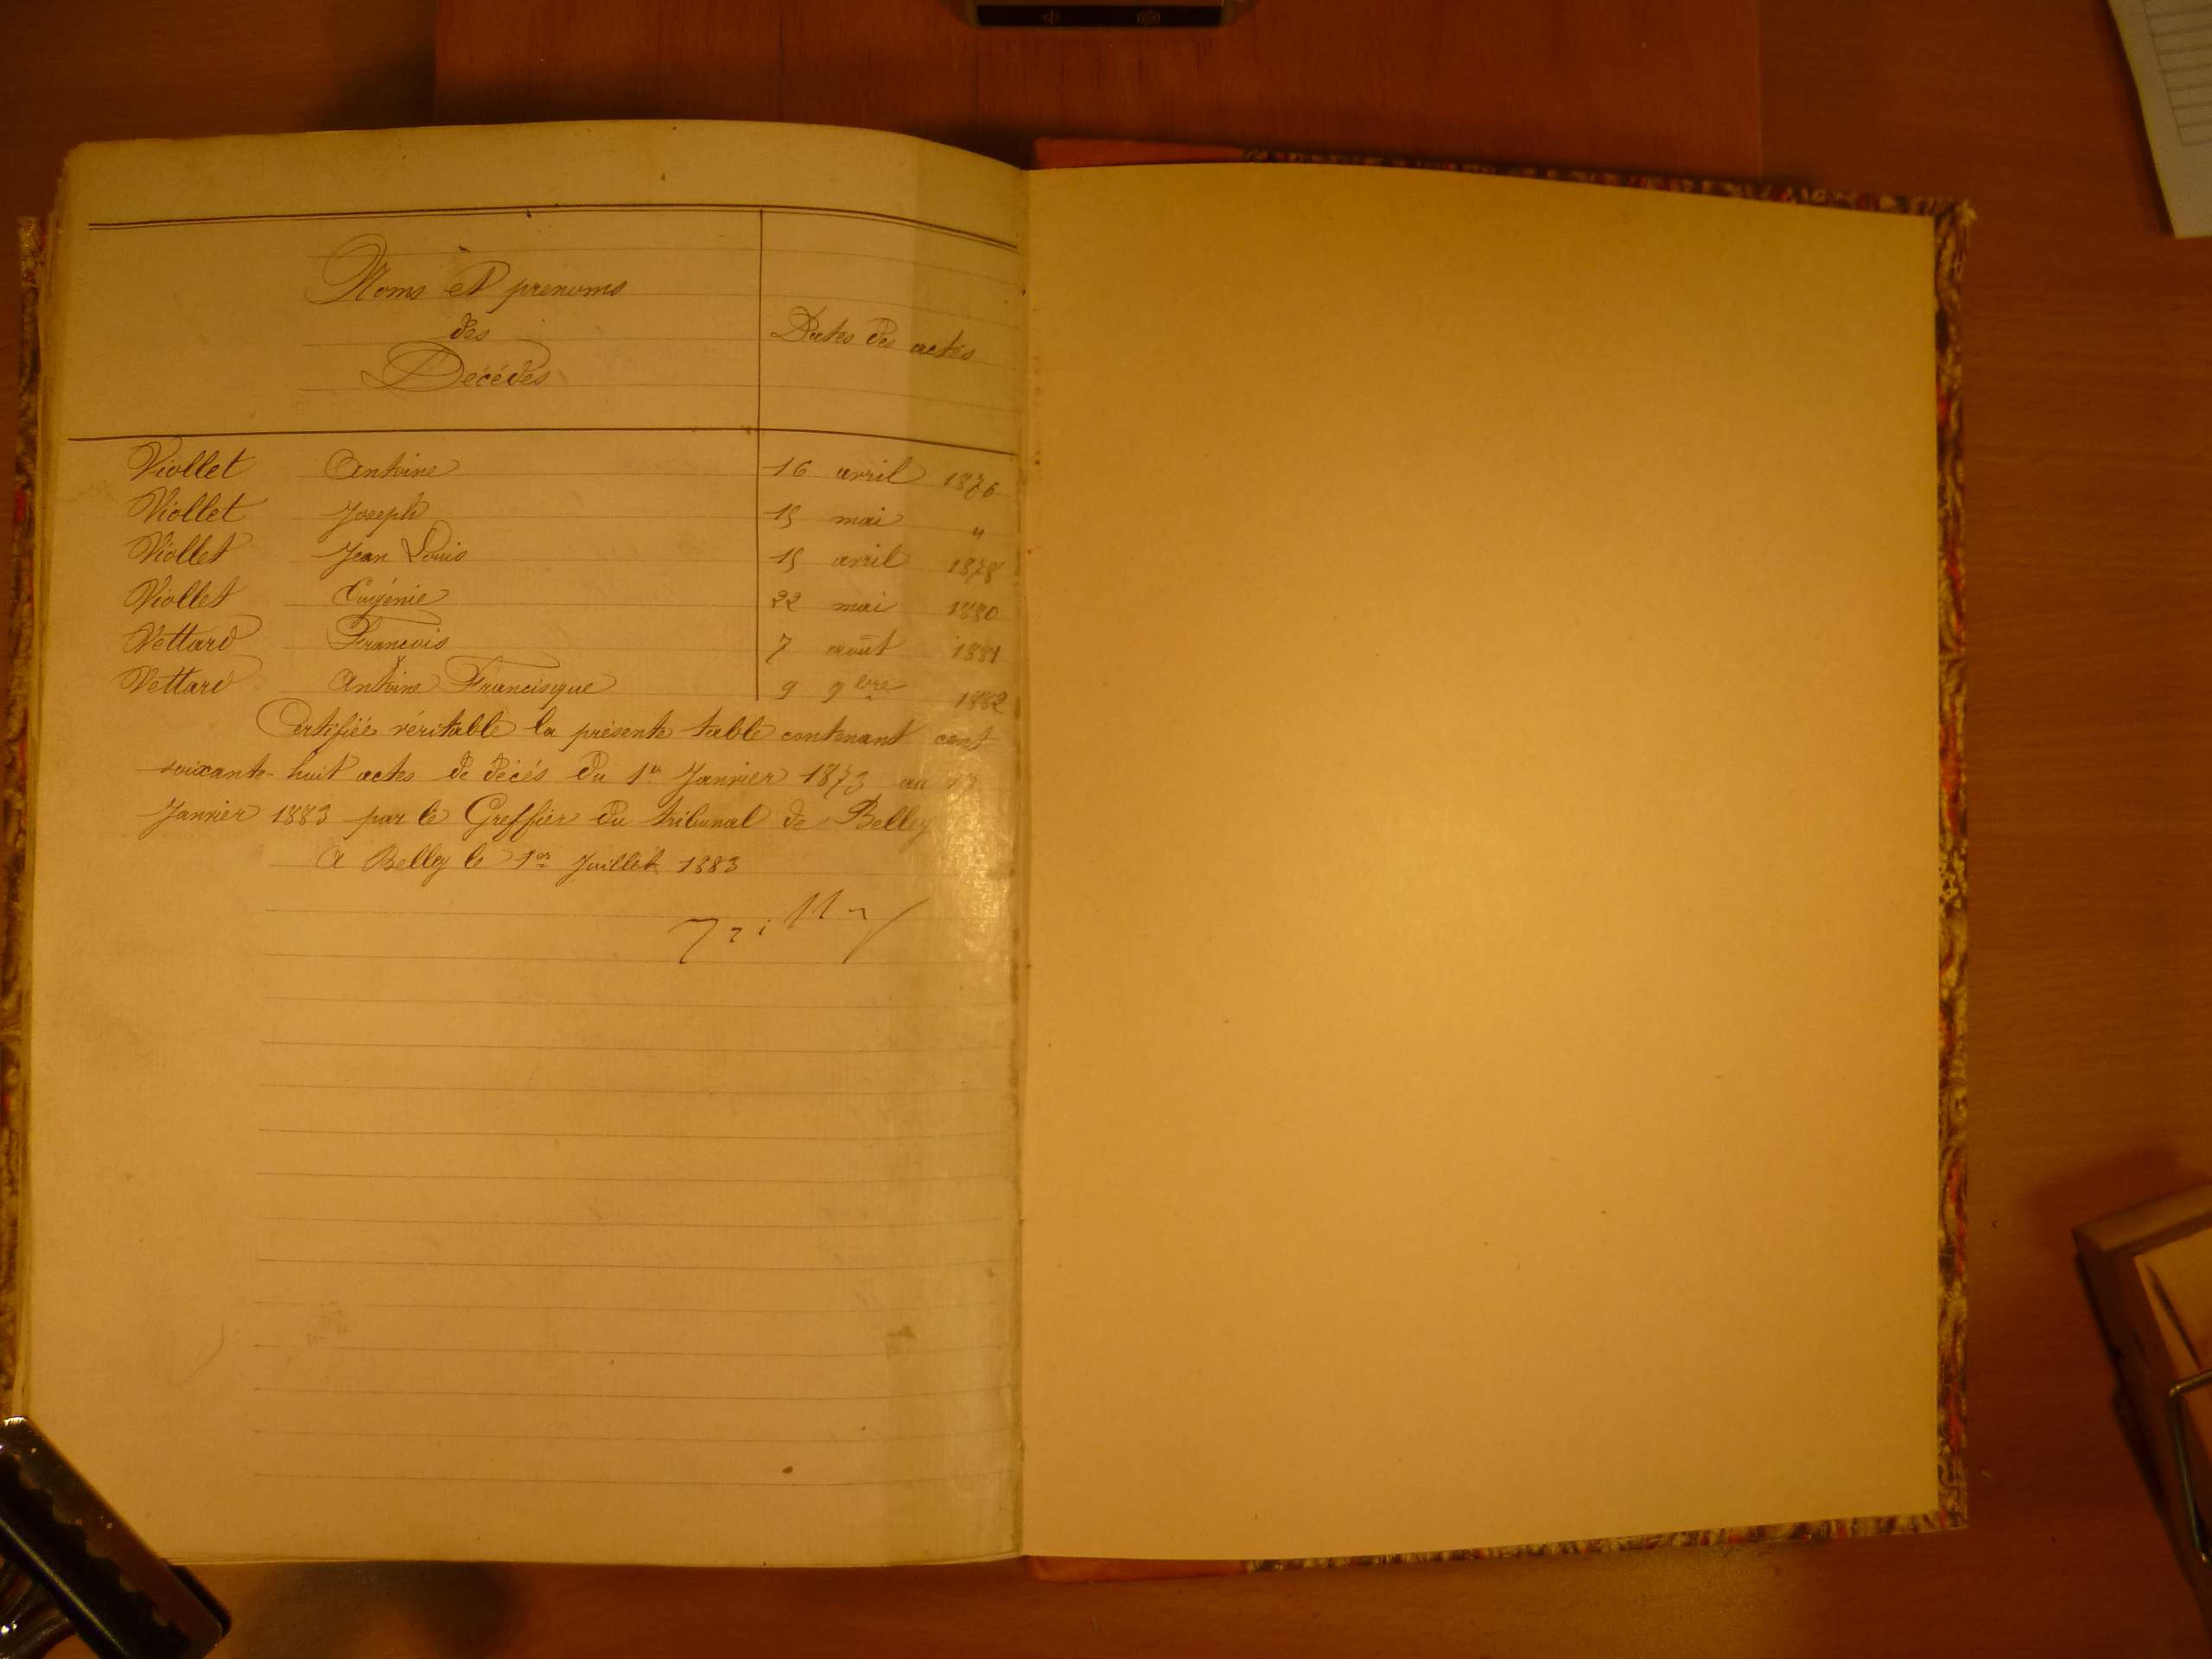 Noms et prenoms
des
Décédés
Dates des actes
Viollet Antoine 16 avril 1876
Viollet Joseph 15 mai "
Viollet Jean Louis 15 avril 1878
Viollet Eugénie 22 mai 1880
Vettard François 7 août 1881
Vettard Antoine Francisque 9 9bre 1882
Certifiée véritable la présente table contenant cent
soixante-huit actes de décés du 1er Janvier 1873 au
Janvier 1883 par le Greffier du tribunal de Belley
A Belley le 1er Juillet 1883